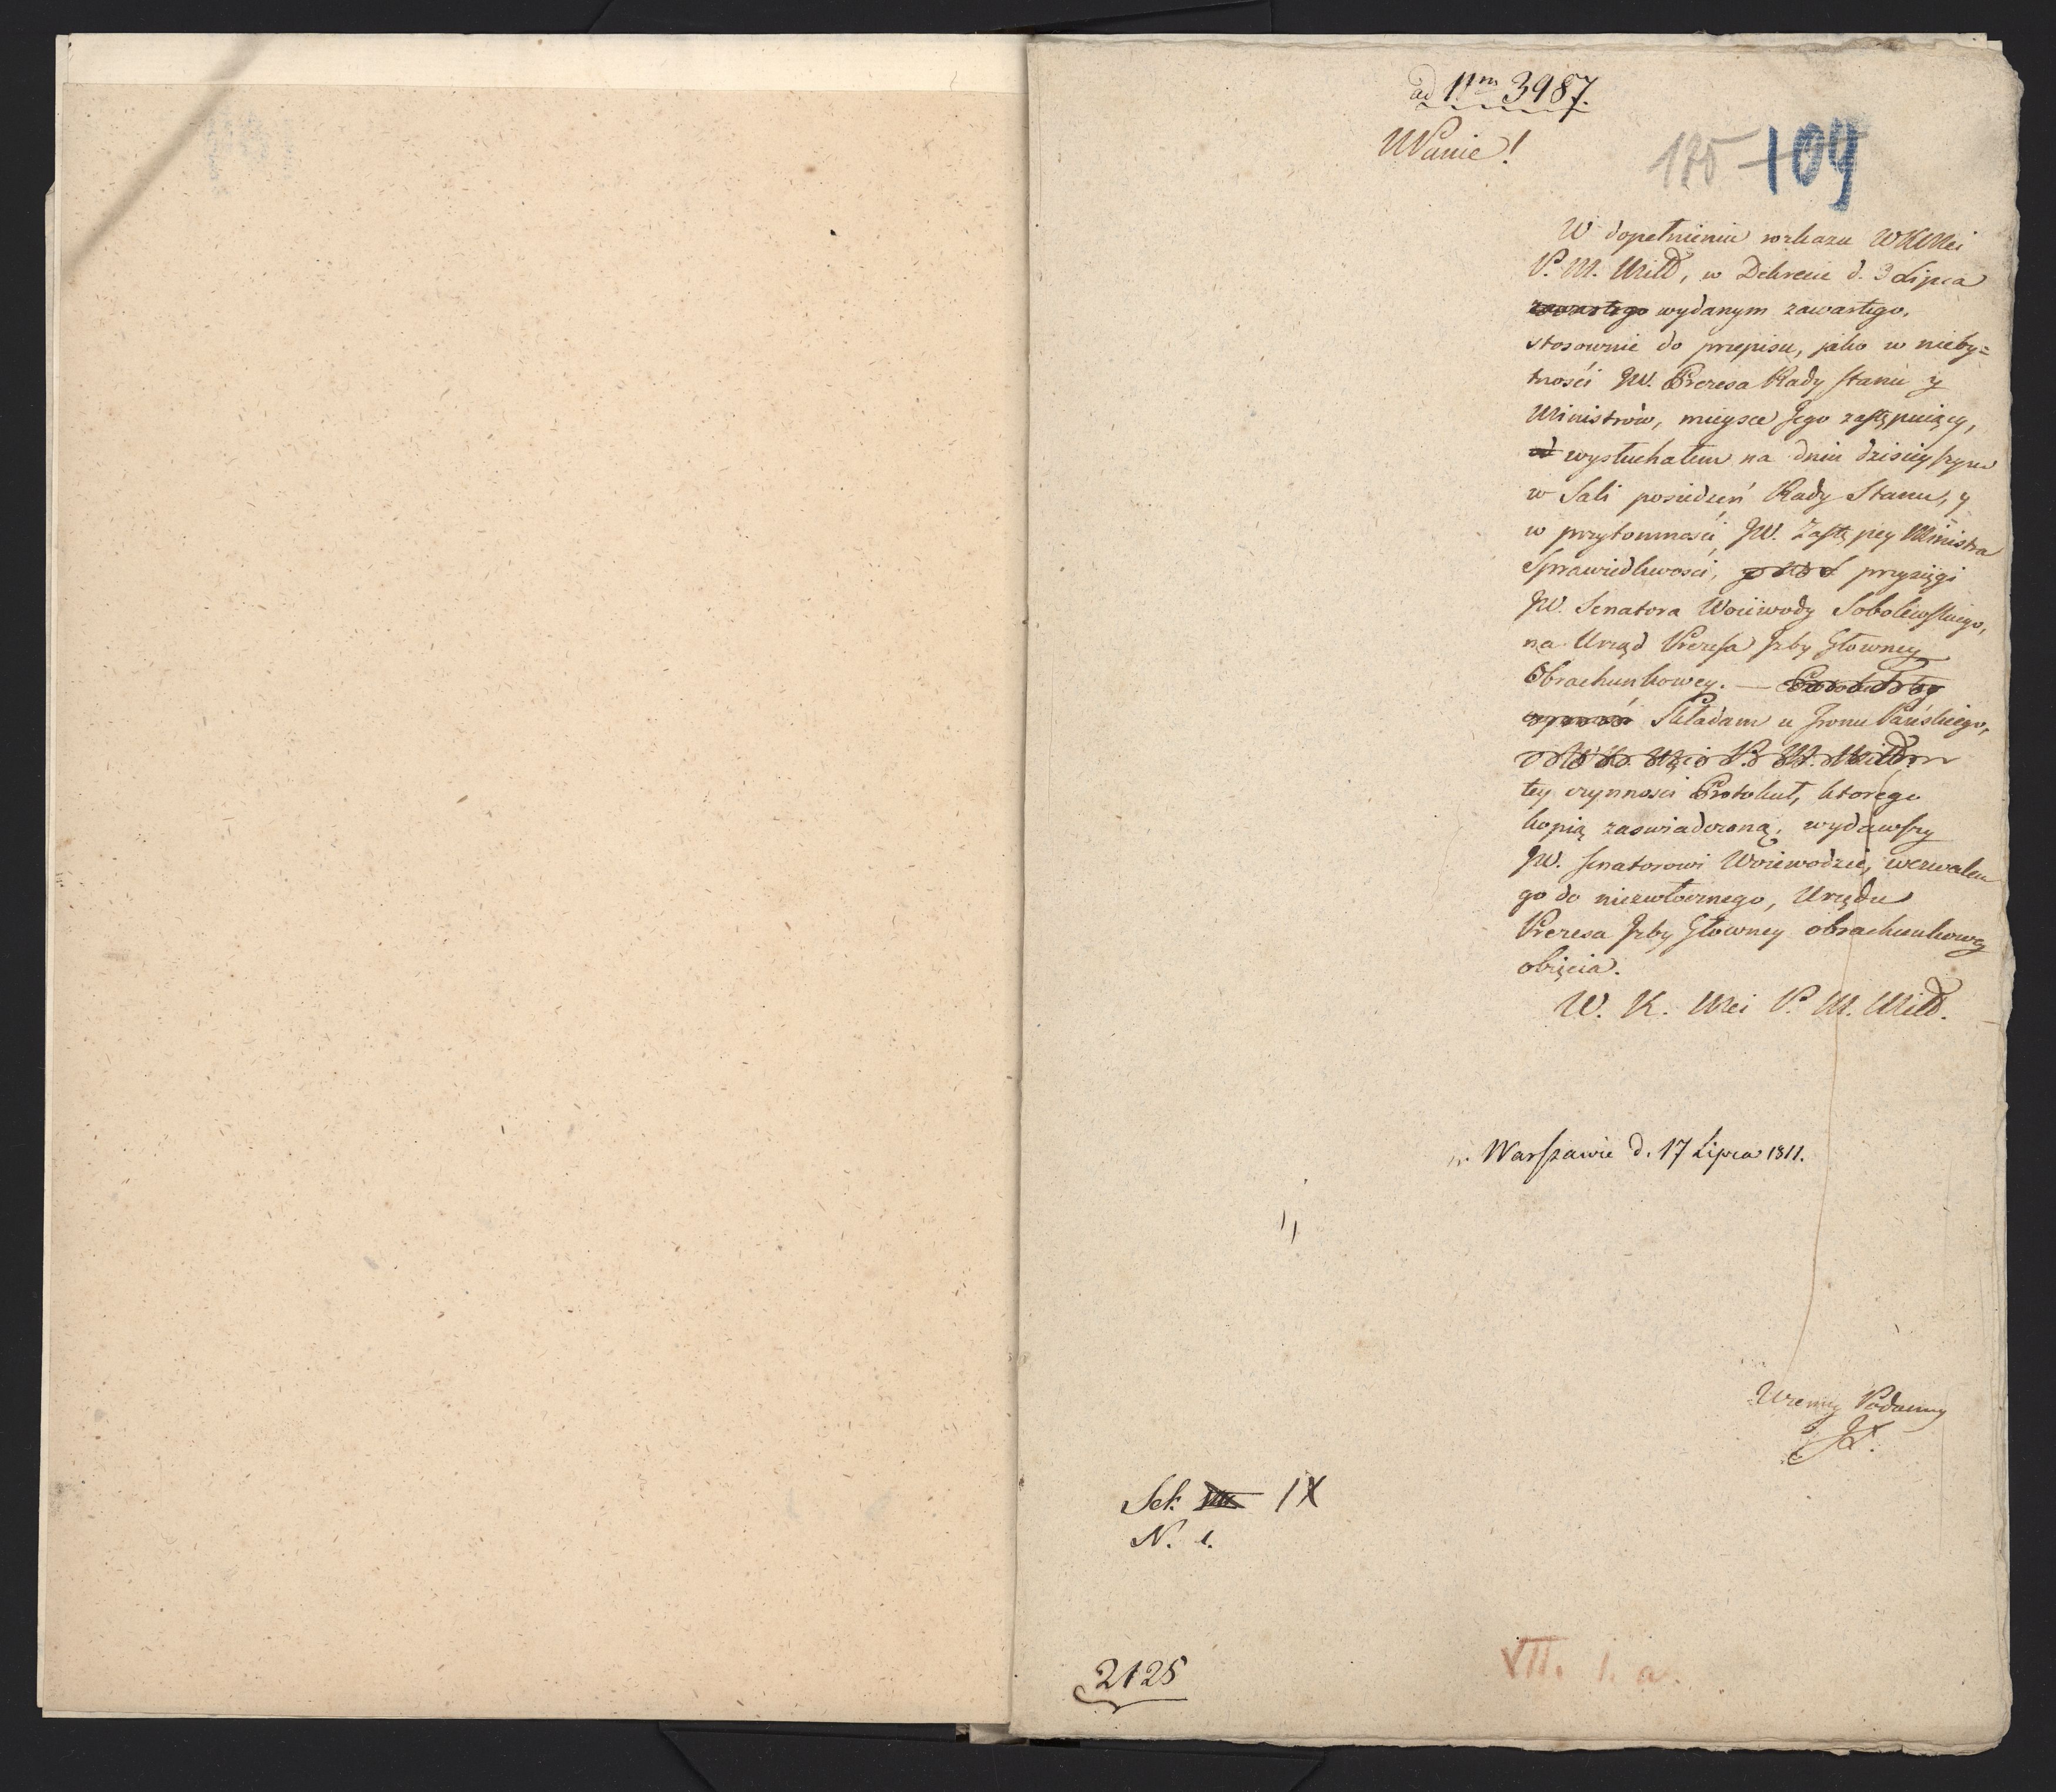 ad Nm 3987.
NPanie!
125 109
W dopełnieniu rozkazu WKMci
P. M. Miłł, w Dekrecie d. 3 Lipca
zawartego wydanym zawartego,
stosownie do przepisu, jako w nieby=
tności JW. Prezesa Rady Stanu y
Ministrów, mieysce Jego zastępuiący,
od wysłuchałem na dniu dzisieyszym
w Sali posiedzeń Rady Stanu, y
w przytomności JW. Zastępcy Ministra
Sprawiedliwości, przysięgi
JW. Senatora Woiewody Sobolewskiego,
na Urząd Prezesa Izby Główney
Obrachunkowey. —
Składam u Tronu Pańskiego,
W. K. Mci P. M. Miłł.
tey czynności Protokuł, ktorego
kopią zaswiadczoną, wydawszy
JW. Senatorowi Woiewodzie, wezwałem
go do niezwłocznego, Urzędu
Prezesa Izby Główney obrachunkowey
obięcia.
W. K. Mci P. M. Miłł.
w Warszawie d. 17 Lipca 1811.
Wierny Poddany
Sek. VIII IX
N. 1.
2125
VII. 1. a.